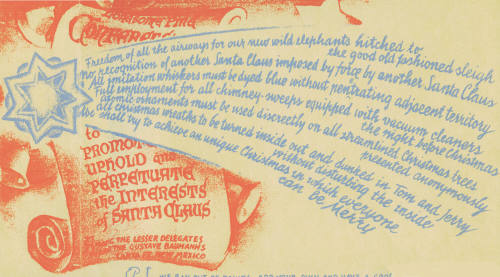 Freedom of all the airways for our new wild elephants hitched to
the good old fashioned sleigh
no recognition of another Santa Claus imposed by force by another Santa Claus
All imitation whiskers must be dyed blue without pentrating adjacent territory
Full employment for all chimney-sweeps equipped with vacuum cleaners
the night before Christmas
Atomic ornaments must be used discretely on all streamlined Christmas trees
presented anonymously
all christmas wreaths to be turned inside out and dunked in Tom and Jerry
without disturbing the inside
We shall try to achieve an unique Christmas in which everyone
can be Merry
to
PROMOTE
UPHOLD and
PERPETUATE
the INTERESTS
of SANTA CLAUS
THE LESSER DELEGATES
THE GUSTAVE BAUMANNS
SANTA FE NEW MEXICO